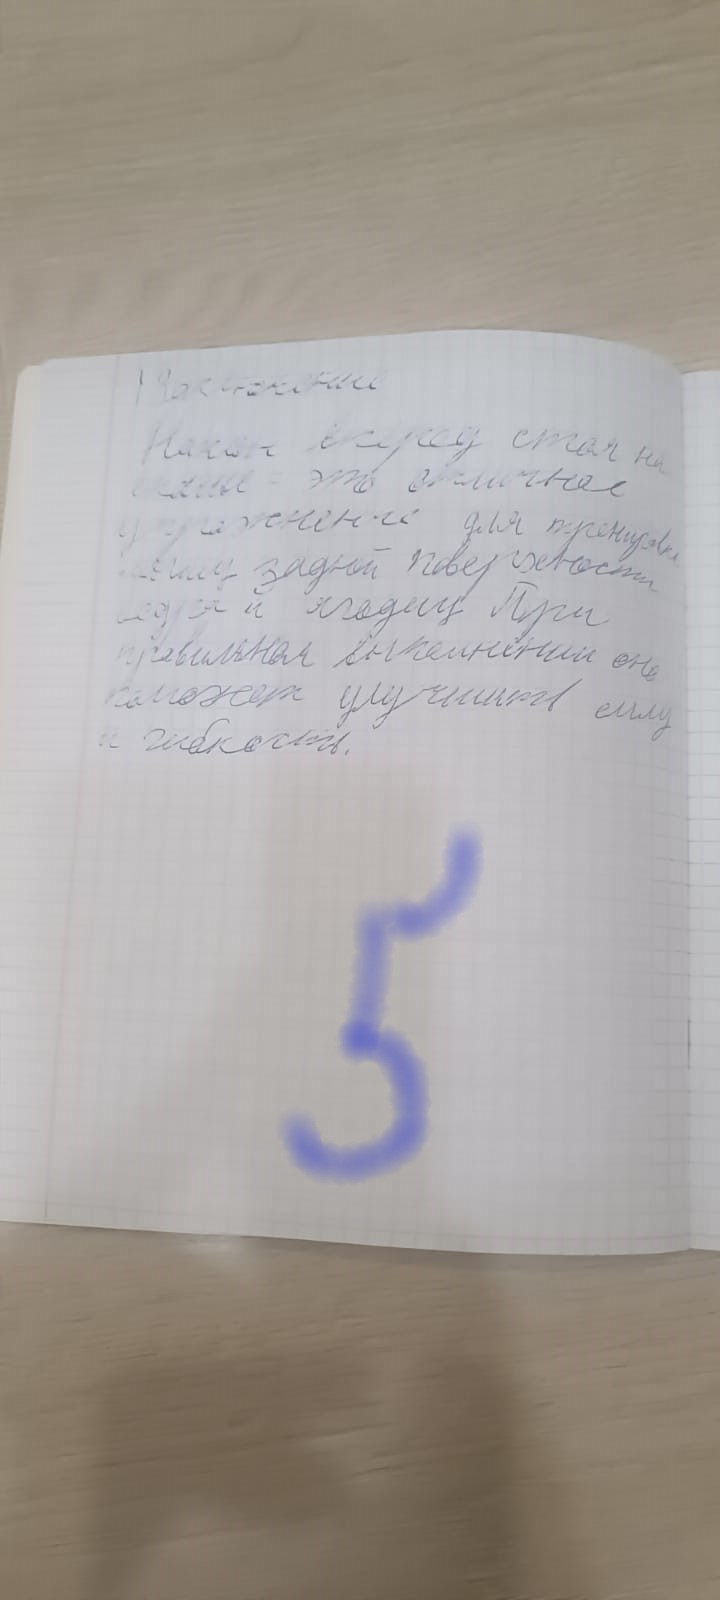 Заключение
Наклон вперед стоя на
скамье - это отличное
упражнение для тренировки
мышц задней поверхности
бедра и ягодиц При
правильном выполнении оно
поможет улучшить силу
и гибкость.
5